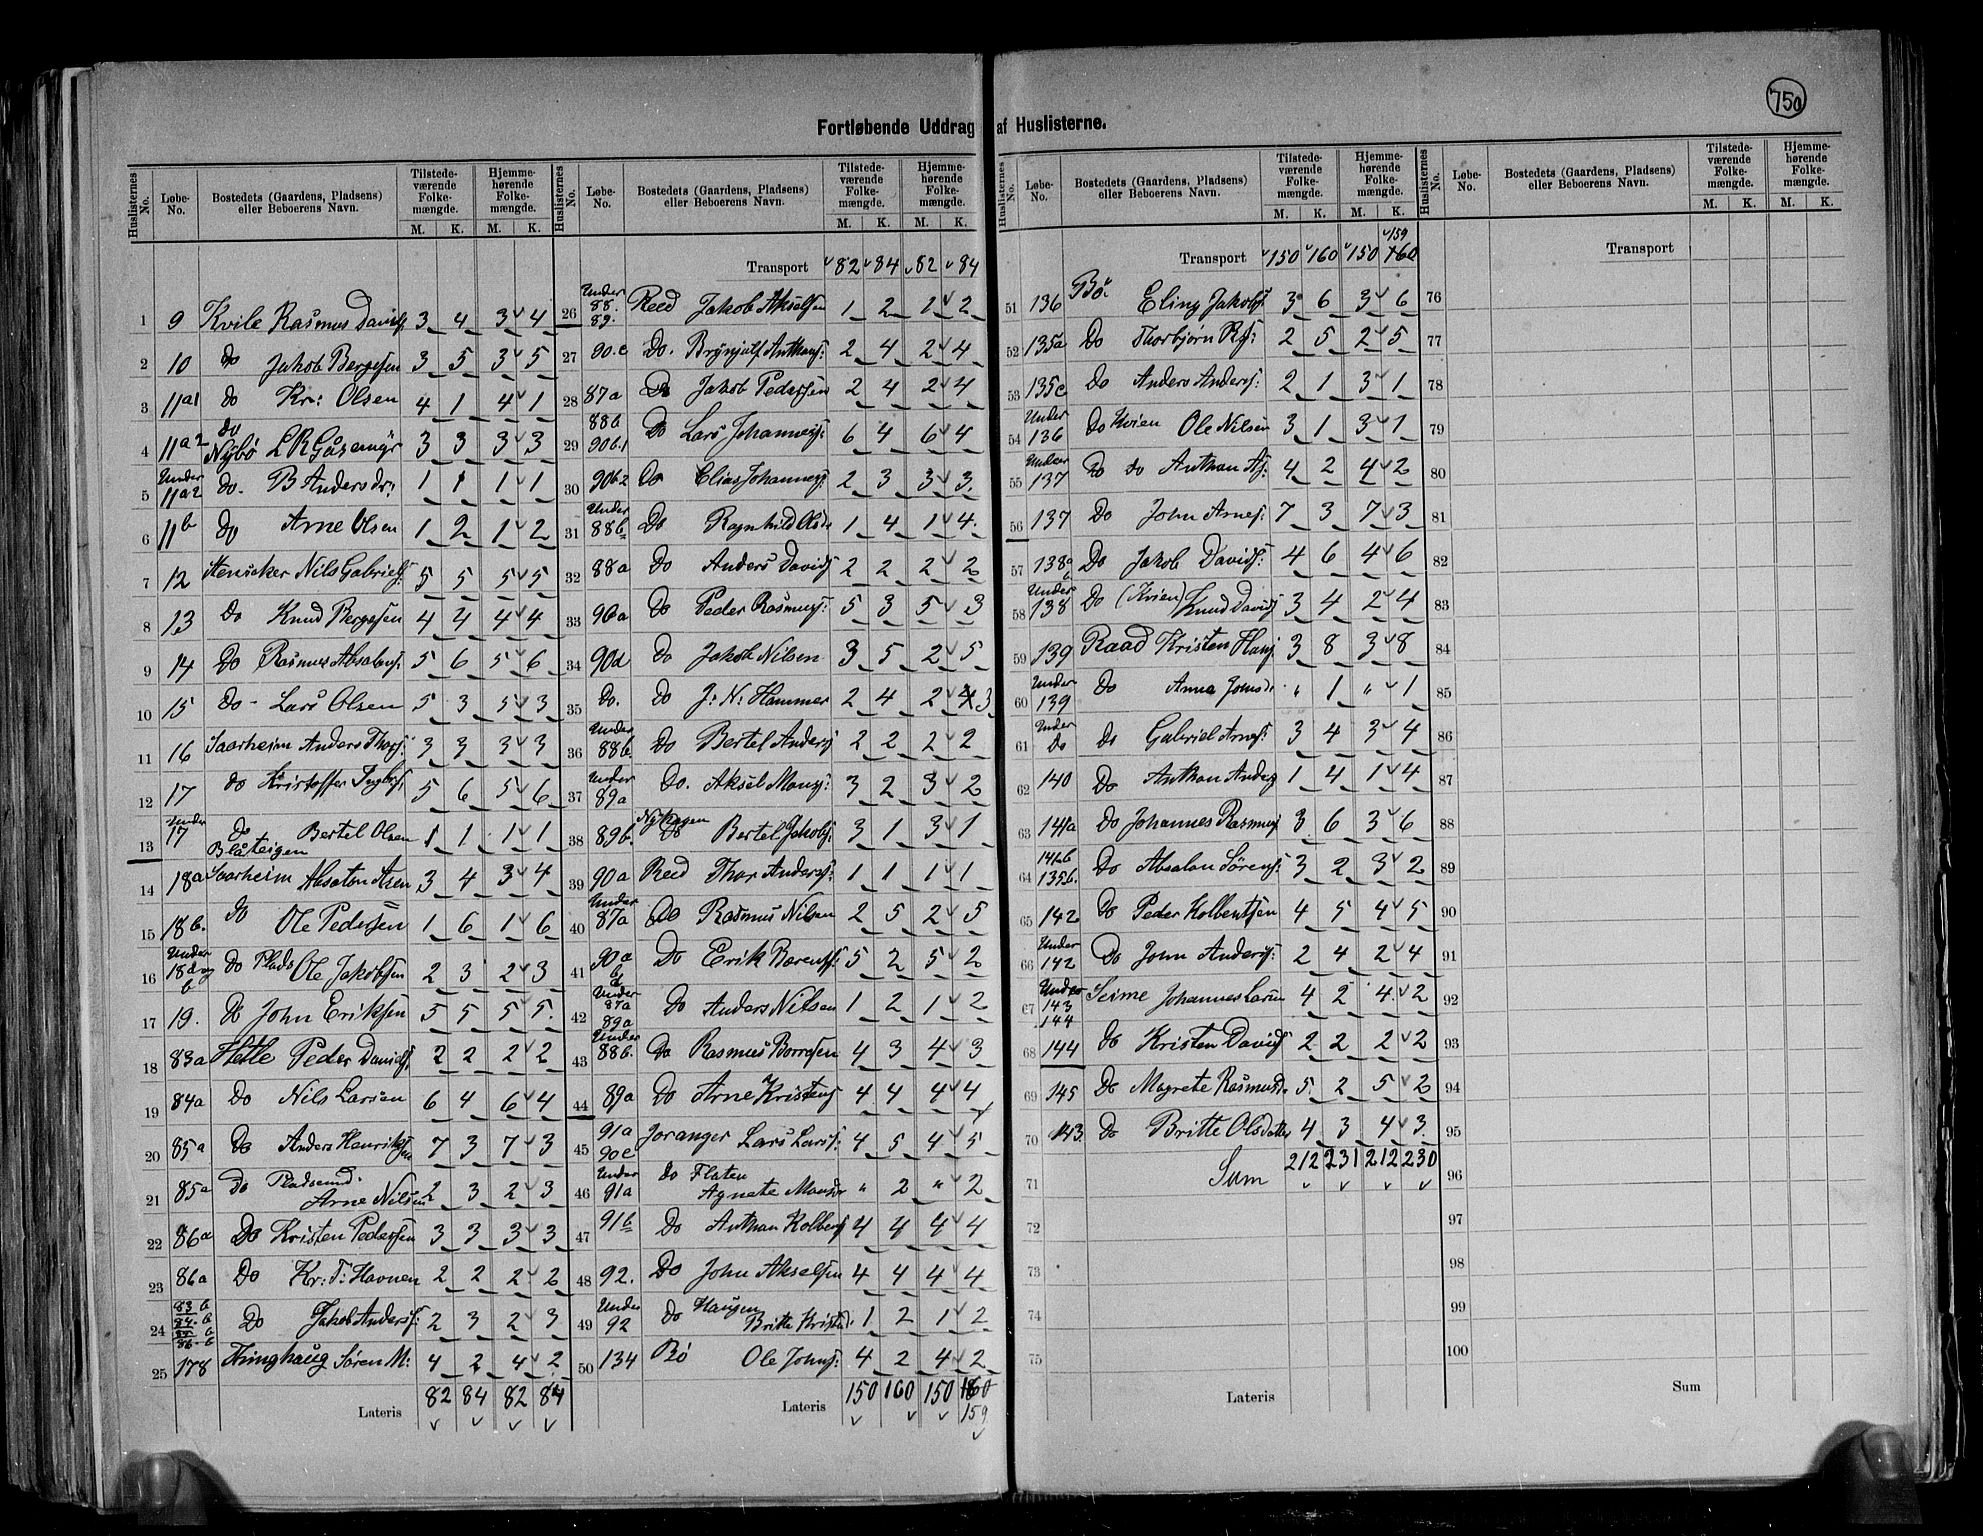 750
Fortløbende Uddrag af Huslisterne.
Huslisternes No. Løbe-No. Bostedets (Gaardens, Pladsens) eller Beboerens Navn. Tilstedeværende Folkemængde. M. K. Hjemmehørende Folkemængde. M. K.
1 9 Kvile Rasmus Davids. 3 4 3 4
2 10 do Jakob Bergesen 3 5 3 5
3 11a1 do Kr: Olsen 4 1 4 1
4 11a2 do Nybø L R Gåsemyr 3 3 3 3
5 Under 11a2 do. B Andersdr: 1 1 1 1
6 11b do Arne Olsen 1 2 1 2
7 12 Stensaker Nils Gabriels: 5 5 5 5
8 13 Do Knud Bergesen 4 4 4 4
9 14 Do Rasmus Absalons: 5 6 5 6
10 15 Do - Lars Olsen 5 3 5 3
11 16 Saarheim Anders Thors: 3 3 3 3
12 17 do Kristoffer 5 6 5 6
13 Under 17 Do Blåteigen Bertel Olsen 1 1 1 1
14 18a Saarheim Absalon 3 4 3 4
15 18b. Do Ole Pedersen 1 6 1 6
16 Under 18a og b Do Plads Ole Jakobsen 2 3 2 3
17 19. Do John Eriksen 5 5 5 5.
18 83a Hetle Peder Davids: 2 2 2 2
19 84a Do Nils Larsen 6 4 6 4
20 85a Do Anders Henriksen 7 3 7 3
21 85a Do Pladsmd. Arne Nilsen 2 3 2 3
22 86a Do Kristen Pedersen 3 3 3 3
23 86a Do Kr: T: Havnen 2 2 2 2
24 83 b 84. b 85 b 86. b Do Jakob Anders: 2 3 2 3
25 178 Søren M: 4 2 4 2
Lateris 82 84 82 84
Transport 82 84 82 84
26 Under 88. 89. Reed Jakob Akselsen 1 2 1 2
27 90.c Do. Brynjulf Anthons: 2 4 2 4
28 87a Do Jakob Pedersen 2 4 2 4
29 88b 90b.1 Do Lars Johannes: 6 4 6 4
30 90b2 Do Elias Johannes: 2 3 3 3.
31 Under 88b Do Ragnhild Olsdr 1 4 1 4.
32 88a Do Anders Davids 2 2 2 2
33 90a Do Peder Rasmus: 5 3 5 3
34 90d Do Jakob Nilsen 3 5 2 5
35 Do. Do J: N: Hammer 2 4 2 4 3
36 Under 88b Do Bertel Anders 2 2 2 2
37 Under 89a Do. Aksel Mons: 3 2 3 2
38 89b. Nyhagen Do Bertel Jakobs: 3 1 3 1
39 90a Reed Thor Anders: 1 1 1 1
40 Under 87a Do Rasmus Nilsen 2 5 2 5
41 90a b d Do Erik Børents: 5 2 5 2
42 Under 87a 89a Do Anders Nilsen 1 2 1 2
43 Under 88b. Do Rasmus Borresen 4 3 4 3
44 89a Do Arne Kristens 4 4 4 4
45 91a 90c Joranger Lars Lars: 4 5 4 5
46 Under 91a do Flaten Agnete Monsdr " 2 " 2
47 91b Do Anthon Kolbens 4 4 4 4
48 92. Do John Akselsen 4 4 4 4
49 Under 92 do Haugen Britte Kristed: 1 2 1 2
50 134 Bø Ole Johns: 4 2 4 2
Lateris 150 160 150 160 159
Transport 150 160 150 160 159
51 136 Bø Eling Jakobs: 3 6 3 6
52 135a Do Thorbjørn Rs: 2 5 2 5
53 135c Do Anders Anders: 2 1 3 1
54 Under 136 Do Kvien Ole Nilsen 3 1 3 1
55 Under 137 Do do Anthon As: 4 2 4 2
56 137 Do John Arnes: 7 3 7 3
57 138a b Do Jakob Davids: 4 6 4 6
58 Under 138 Do (Kvien) Knud Davids 3 4 2 4
59 139 Raad Kristen Hans 3 8 3 8
60 Under 139 Do Anna Johnsdr " 1 " 1
61 Under Do Do Gabriel Arnes: 3 4 3 4
62 140 Do Anthon Anders 1 4 1 4
63 141a Do Johannes Rasmus 3 6 3 6
64 141b 135b. Do Absalon Sørens: 3 2 3 2
65 142 Do Peder Kolbentsen 4 5 4 5
66 Under 142 Do John Anders: 2 4 2 4
67 Under 143 144 Seime Johannes Larsen 4 2 4 2
68 144 Do Kristen Davids 2 2 2 2
69 145 Do Magrete Rasmusdr 5 2 5 2
70 143. Do Britte Olsdatter 4 3 4 3.
71 Sum 212 231 212 230
72
73
74
75
Lateris
Transport
76
77
78
79
80
81
82
83
84
85
86
87
88
89
90
91
92
93
94
95
96
97
98
99
100
Sum